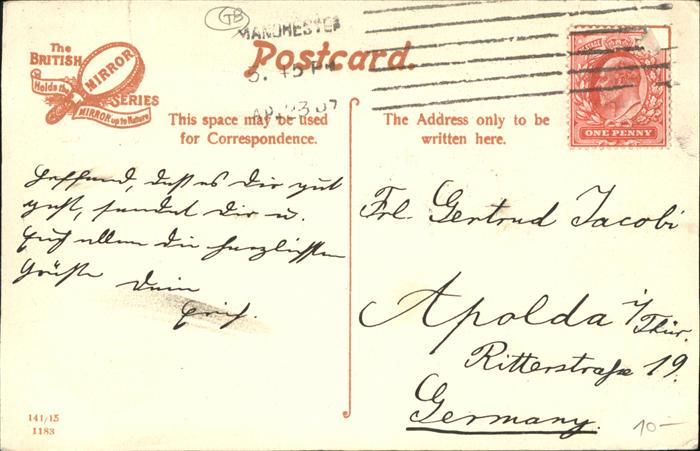 GB
MANCHESTER
3. 45 PM
AP 23 07
Postcard.
The
BRITISH
MIRROR
SERIES
Holds the
MIRROR up to Nature
This space may be used
for Correspondence.
The Address only to be
written here.
ONE PENNY
Hoffend, daß es Dir gut
geht, sendet Dir u.
Euch allen die herzlichsten
Grüße Dein
Erich.
Frl. Gertrud Jacobi
Apolda i/Thür.
Ritterstraße 19.
Germany.
141/15
1183
10-